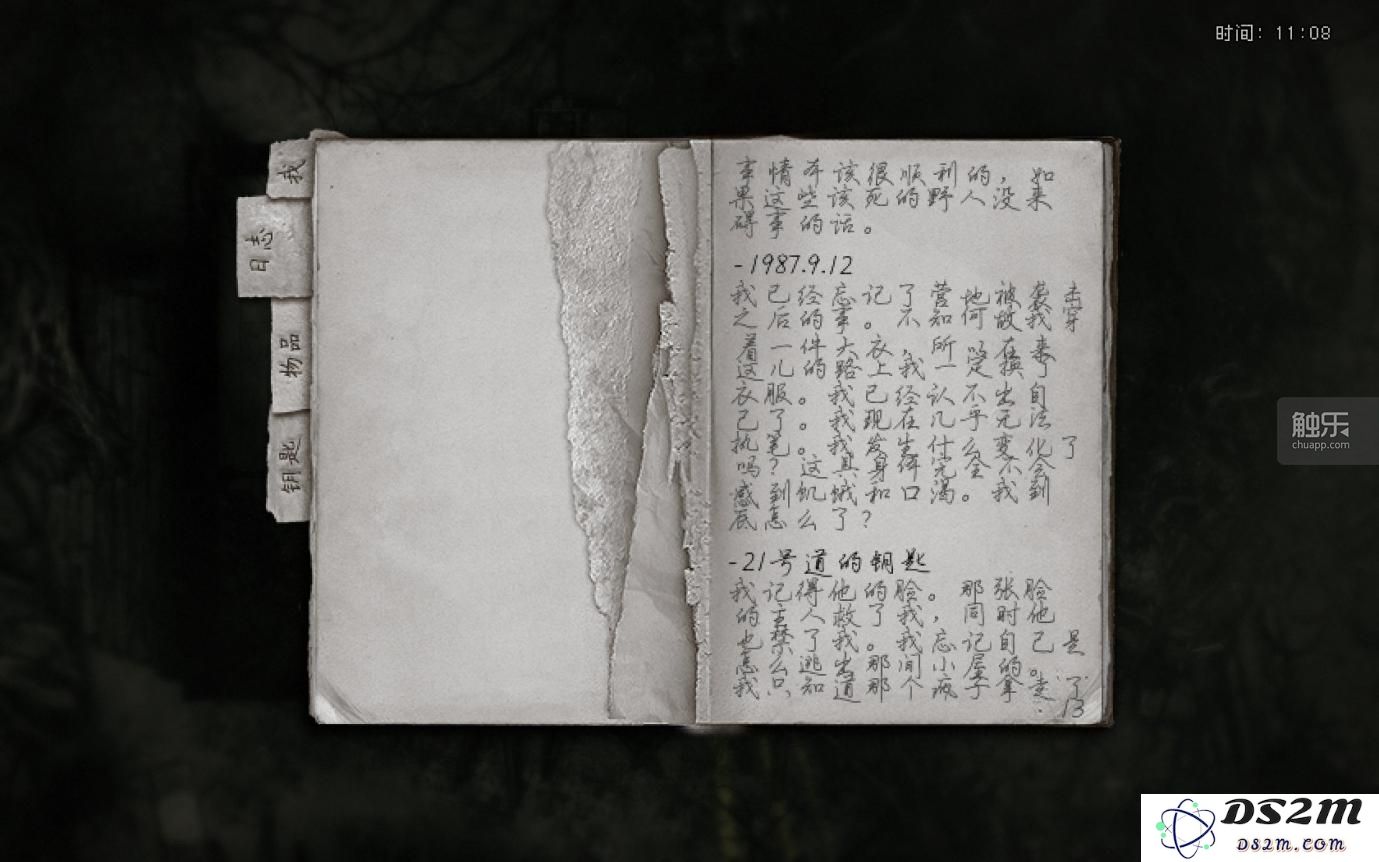 时间: 11:08
我
日志
物品
钥匙
事情本该很顺利的，如
果这些该死的野人没来
碍事的话。
-1987.9.12
我已经忘记了营地被袭击
之后的事。不知何故我穿
着一件大衣，所 在来
这儿的路上我一定 换了
衣服。我已经认不出自
己了。我现在几乎无法
执笔。我发生什么变化了
吗？这具身体完全不会
感到饥饿和口渴。我到
底怎么了？
-21号道的钥匙
我记得他的脸。那张脸
的主人救了我，同时他
也禁了我。我忘记自己是
怎么逃出那间小屋的。
我只知道那个疯子拿走了
13
触乐
chuapp.com
DS2M
DS2M.com